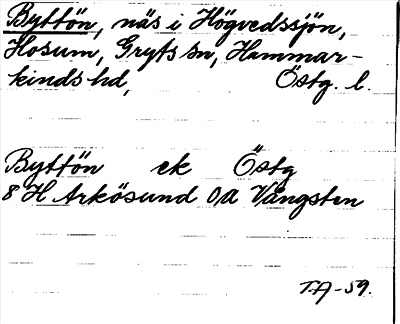 Byttön, näs i Högvedssjön,
Hosum, Gryts sn, Hammar-
kinds hd, Östg. l.
Byttön ek Östg
8 H Arkösund 0d Vångsten
T.A-59.